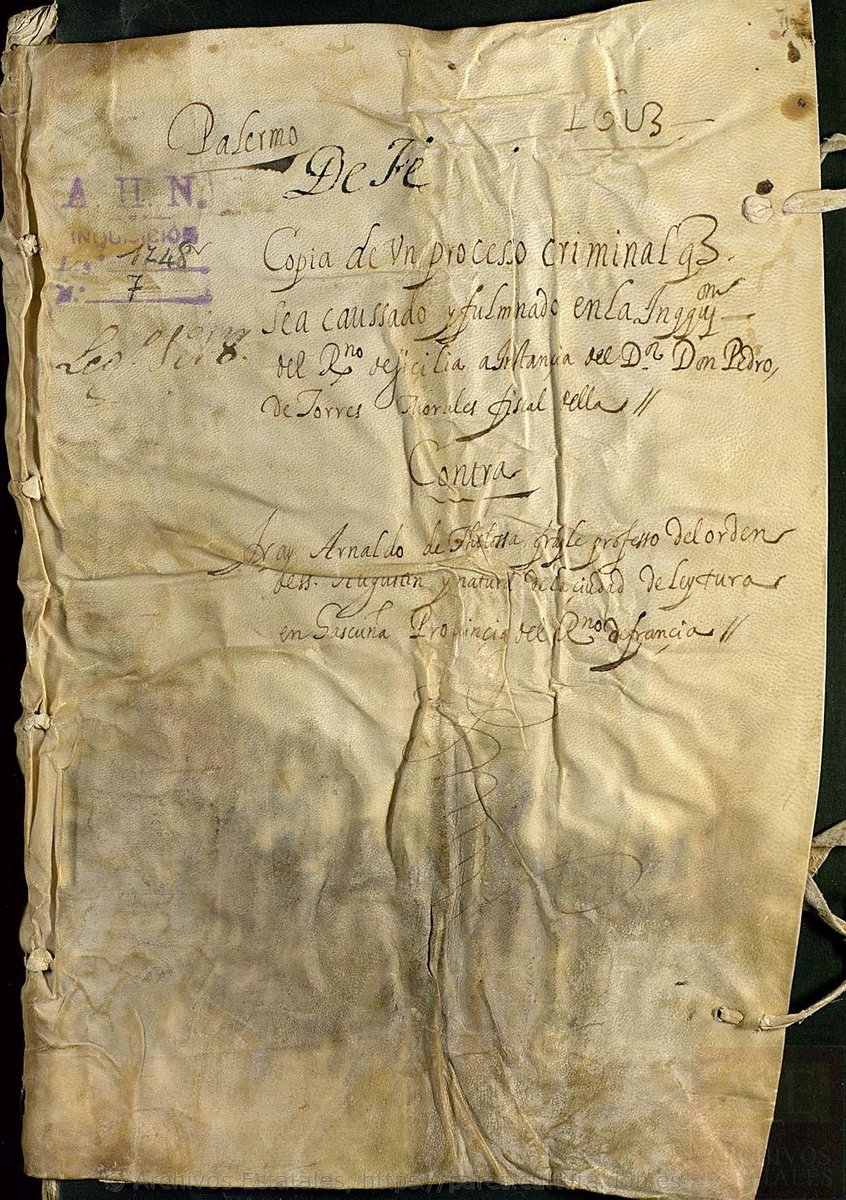 Palermo
De Fe
A. H. N.
INQUISICIÓN
Leg.º 1748
N.º 7
Copia de Vn processo criminal q3.
sea caussado y fulmnado en la Inqqon
del Rno de sicilia a Instancia del Dr. Don Pedro,
de Torres Morales fiscal della //
Contra
fray Arnaldo de Tholossa frayle professo del orden
de st. Augustin y natural de la ciudad de leytura
en Gascuña Prouincia del Rno de francia //
© Archivos Estatales, http://pares